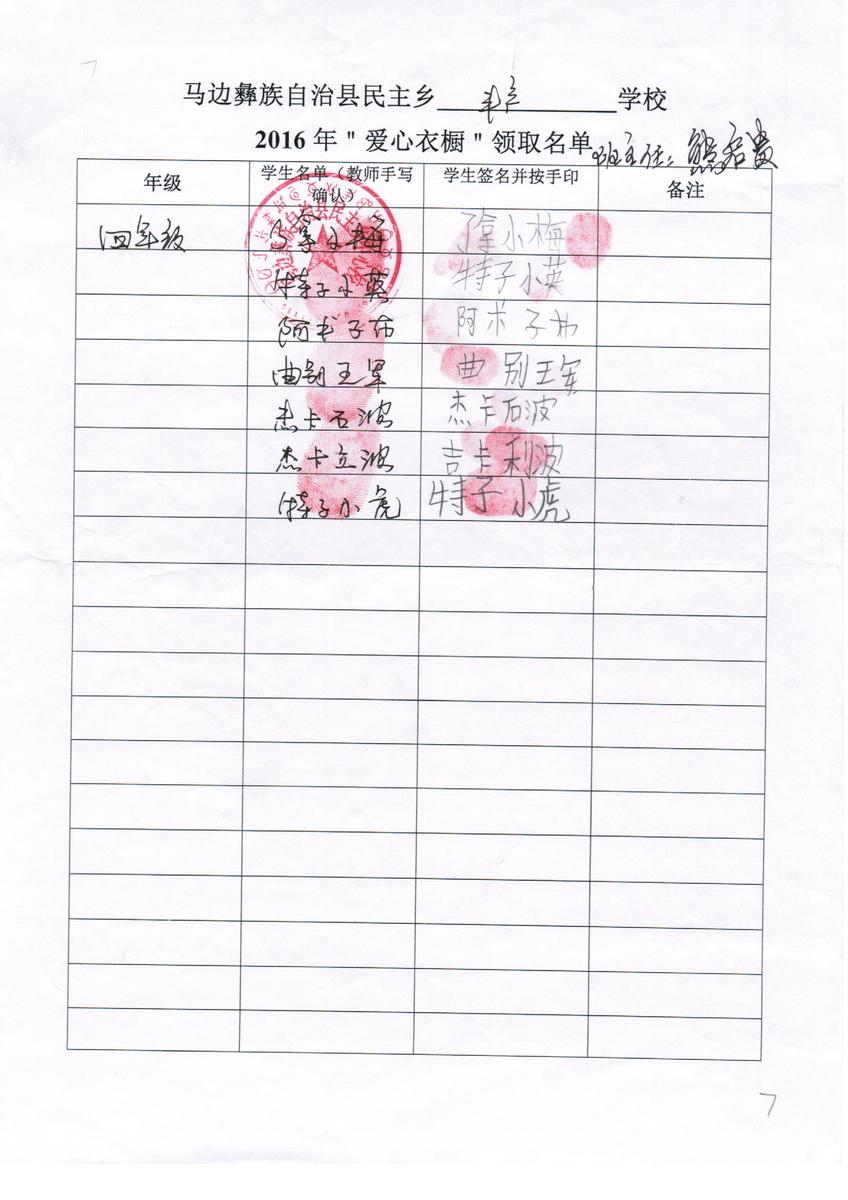 7
马边彝族自治县民主乡 学校
2016 年 " 爱心衣橱 " 领取名单 班主任:
年级 学生名单（教师手写确认） 学生签名并按手印 备注
四年级 小梅 了拿小梅
特子小英 特子小英
阿 子布 阿 子
曲别王军 曲别王军
杰卡石波 杰卡石波
杰卡立波 吉卡利波
特子小虎 特子小虎
7